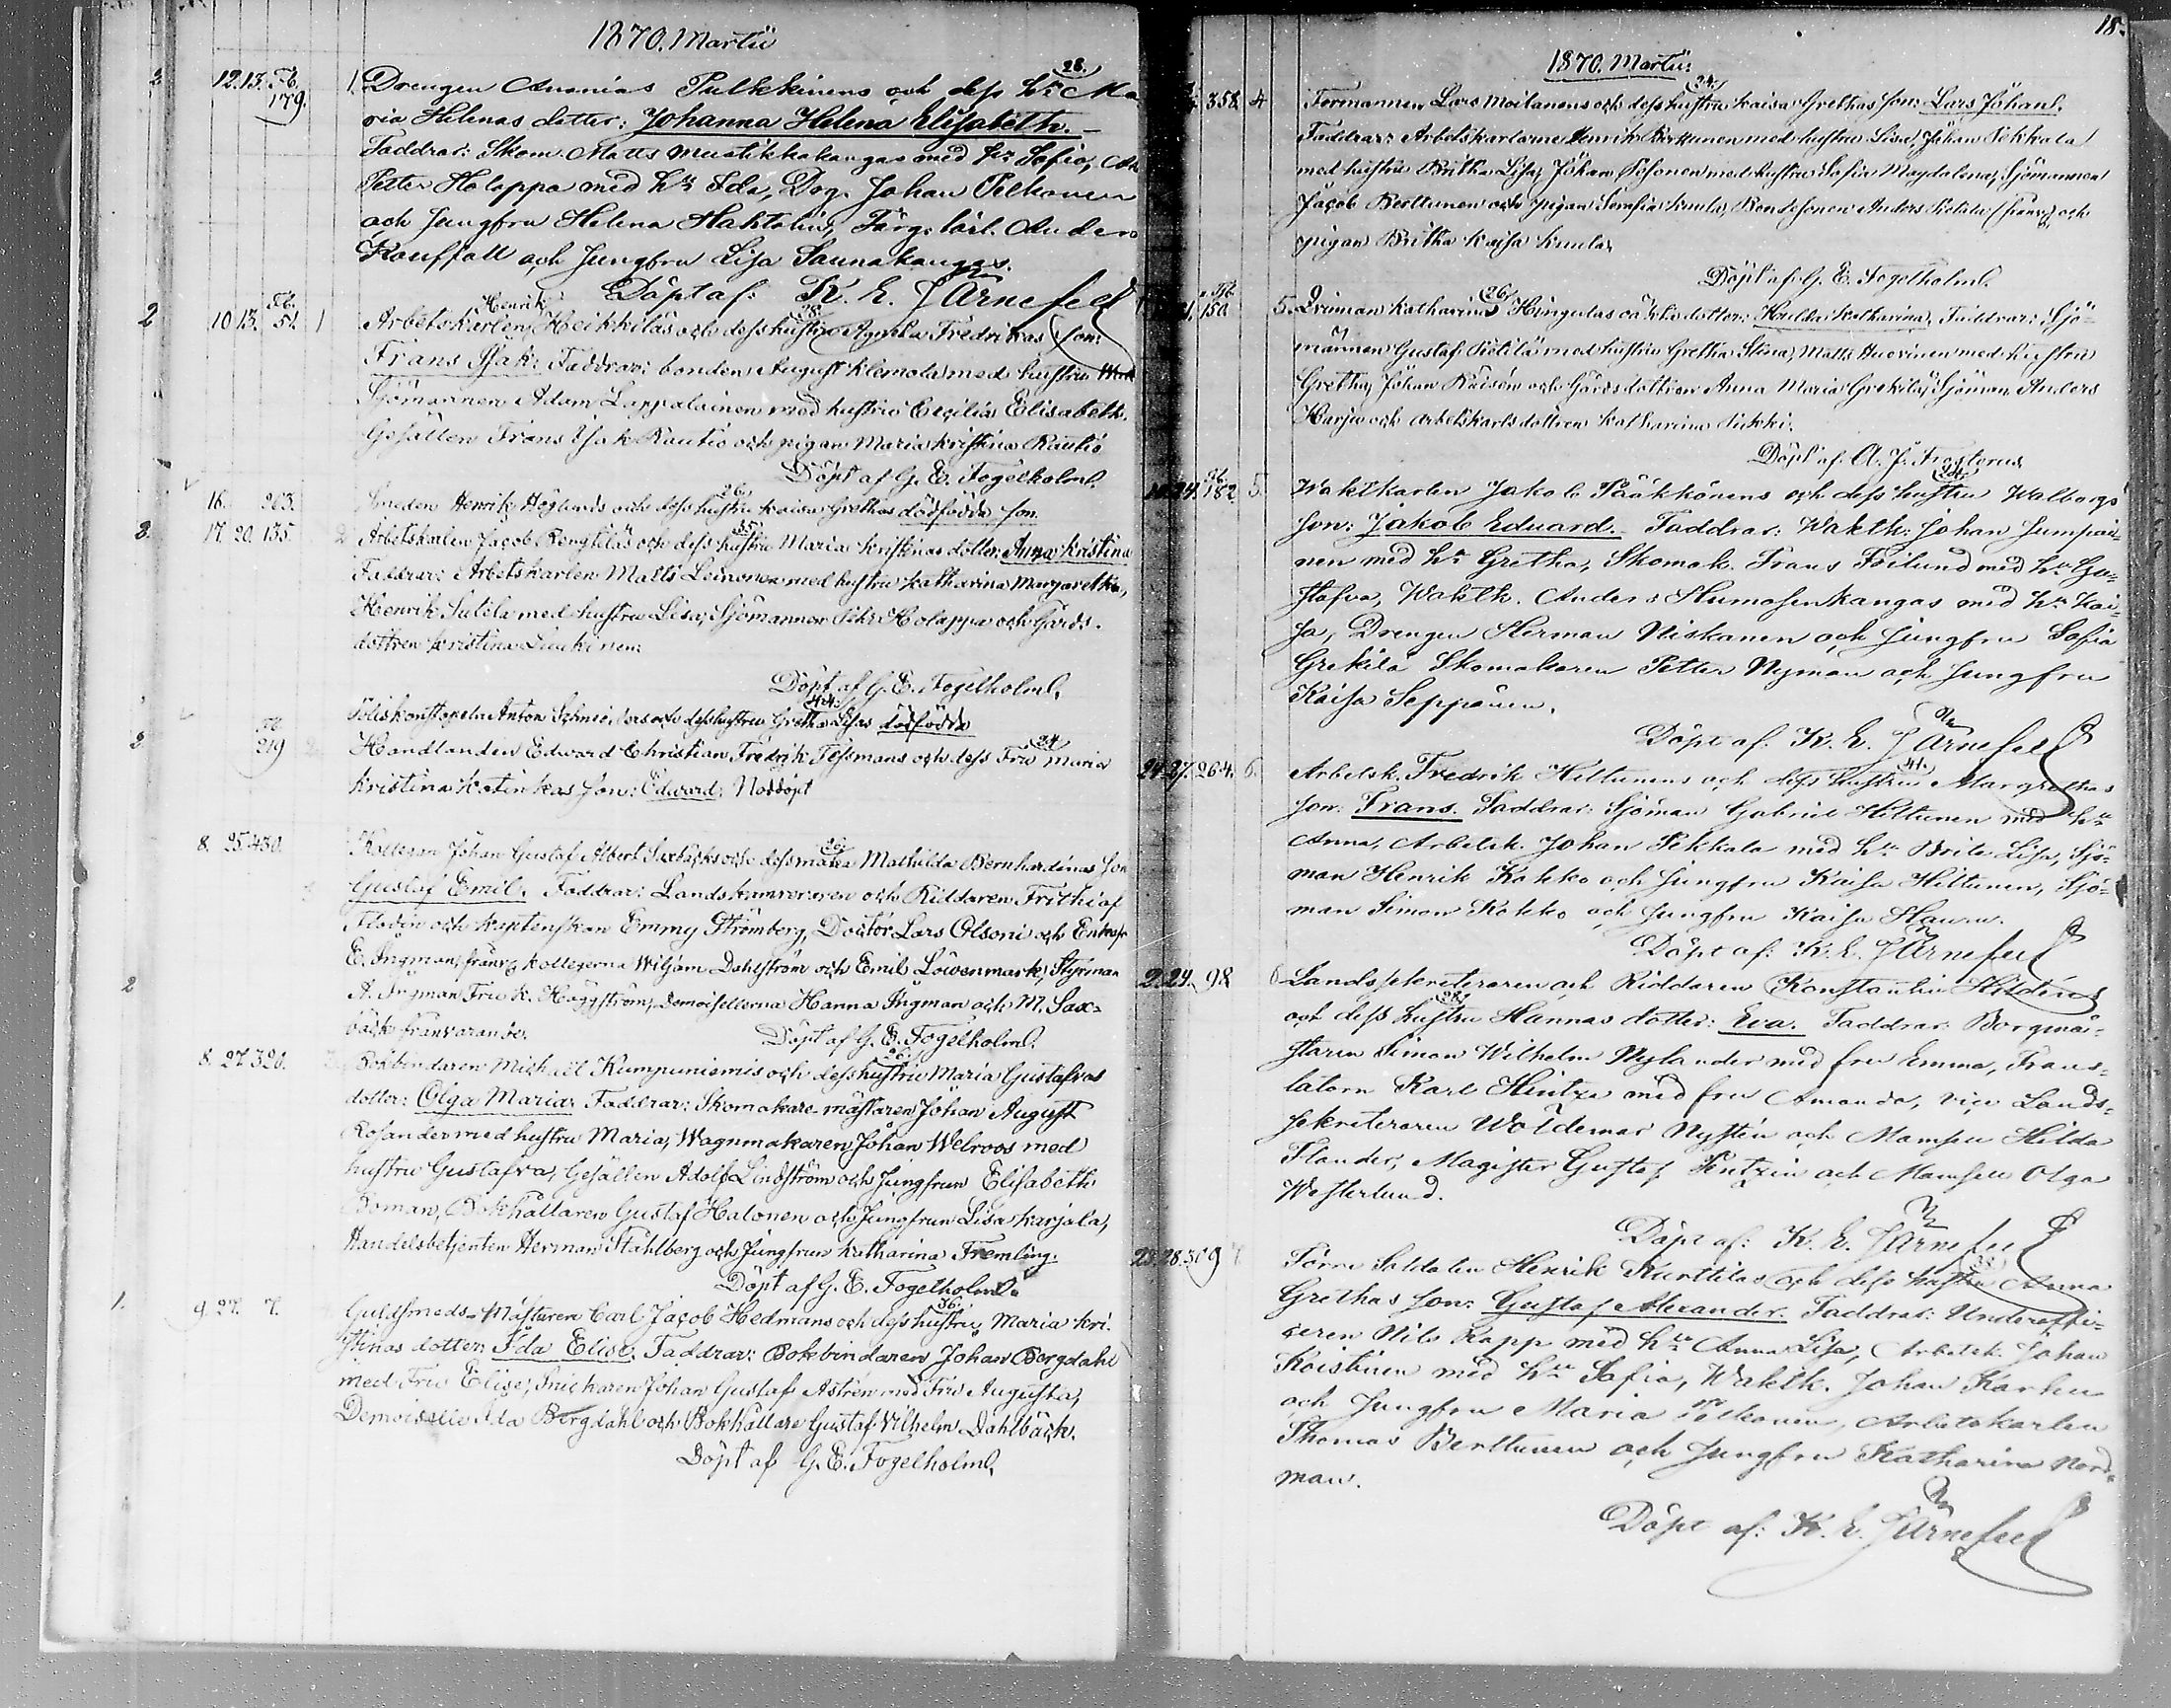 1870. Martii
2 12. 13. Fb. 179. 1. Drengen Ananias Pulkkinens och dess hu 28. Ma
ria Helenas dotter: Johanna Helena Elisabeth.
Faddrar: Skom. Matts Mustikkakangas med hu Sofia,
Petter Holappa med hu Ida, Drg. Johan Pelkonen
och Jungfru Helena Haktalin, Färg. lärl. Anders
Kauffall och Jungfru Lisa Saunakangas.
Döpt af: K. E. Järnefelt
2 10 13. Fb. 51. 1 Arbetskarlen Henrik Heikkiläs och dess hustru Agatha Fredrikas son:
Frans Isak: Faddrar: bonden August Klemola med hustru
Sjömannen Adam Lappalainen med hustru Cecilia Elisabeth.
Gesällen Frans Isak Rautio och pigan Maria Kristina Rautio
Döpt af G. E. Fogelholm.
16. 263. Smeden Henrik Höglunds och dess hustru 26. Kaisa Grethas dödfödde son.
3. 17. 20. 135. 2 Arbetskarlen Jacob Rengiläs och dess hustru 35. Maria Kristinas dotter: Anna Kristina
Faddrar: Arbetskarlen Matts Leinonen med hustru Katharina Margaretha,
Henrik Sutela med hustru Lisa, Sjömannen Petr Holappa och Gårds-
dottren Kristina
Döpt af G. E. Fogelholm.
Poliskonstapeln Anton Schneiders och dess hustru 44. Gretha Lisas dödfödde
2 Fb. 219 2 Handlanden Edward Christian Fredrik Tessmans och dess Fru 34 Maria
Kristina Katinkas son: Edward: Nöddöpt
8. 25. 430. Kollegan Johan Gustaf Albert Saxbäcks och dess maka 26. Mathilda Bernhardinas son
Gustaf Emil. Faddrar: Landskamreraren och Riddaren Frithiof
Flodin och kaptenskan Emmy Strömberg, Doctor Lars Olsoni och
E. Ingman, frånv. kollegerna Wiljam Dahlström och Emil Löwenmark, Styrman
A. Ingman Fru K. Häggström, Demoisellerna Hanna Ingman och M. Sax-
bäck frånvarande. Döpt af G. E. Fogelholm.
8. 27. 320. Bokbindaren Michaël Kumpuniemis och dess hustru 26. Maria Gustafvas
dotter: Olga Maria. Faddrar: Skomakare-mästaren Johan August
Rosander med hustru Maria, Wagnmakaren Johan Welroos med
hustru Gustafva, Gesällen Adolf Lindström och Jungfrun Elisabeth
Boman, Bokhållaren Gustaf Halonen och Jungfrun Lisa Karjala,
Handelsbetjenten Herman Ståhlberg och Jungfrun Katharina Fremling.
Döpt af G. E. Fogelholm.
1. 9. 27. 7. Guldsmeds-Mästaren Carl Jacob Hedmans och dess hustru 36. Maria Kri-
stinas dotter: Ida Elise. Faddrar: Bokbindaren Johan Bergdahl
med Fru Elise, Snickaren Johan Gustaf Astrén med Fru Augusta,
Demoiselle Ida Bergdahl och Bokhållare Gustaf Vilhelm Dahlbäck.
Döpt af G. E. Fogelholm.
18.
1870. Martii:
358. 4 Formannen Lars Moilanens och dess hustru 24. Kaisa Grethas son: Lars Johan.
Faddrar: Arbetskarlarne Henrik Kirkunen med hustru Lisa, Johan Pekkala
med hustru Britha Lisa, Johan Pesonen med hustru Sofia Magdalena, Sjömannen
Jacob Berttunen och pigan Kaisa bondesonen Anders Pietilä (frånv.) och
pigan Britha Kaisa
Döpt af G. E. Fogelholm.
Fb. 150. 5. Qvinnan Katharina 26. Hingulas oä. dotter: Hulda Katharina. Faddrar: Sjö-
männen Gustaf Pietilä med hustru Gretha Stina, Matts Huovinen med hustru
Gretha, Johan Räisän och Gårdsdottren Anna Maria Grekilä, Sjöman Anders
Harju och arbetskarlsdottren Katharina
Döpt af A. J. Frosterus
Fb. 182 5. Waktkarlen Jakob Pääkkönens och dess hustru 24. Walborgs
son: Jakob Eduard. Faddrar: Waktk: Johan Jumpai-
nen med hu Gretha, Skomak. Frans Frilund med hu Gu-
stafva, Waktk. Anders Humasenkangas med hu Kai-
sa, Drengen Herman Niskanen och Jungfru Sofia
Grekilä Skomakaren Petter Nyman och Jungfru
Kaisa Seppänen.
Döpt af. K. E. Järnefelt
24. 27. 264. 6. Arbetsk. Fredrik Hiltunens och dess hustru 41. Margrethas
son: Frans. Faddrar: Sjöman Gabriel Hiltunen med hu
Anna, Arbetsk. Johan Pekkala med hu Brita Lisa, Sjö-
man Henrik Kokko och Jungfru Kaisa Hiltunen, Sjö-
man Simon Kokko och Jungfru Kaisa
Döpt af: K. E. Järnefelt
2. 24. 98 6 Landssekreteraren och Riddaren Konstantin Hildéns
och dess hustru 28. Hannas dotter: Eva. Faddrar: Borgmä-
staren Simon Wilhelm Nylander med fru Emma, Trans-
latorn Karl Hintze med fru Amanda, vice Lands-
sekreteraren Woldemar Nystén och Mamsell Hilda
Flander, Magister Gustaf Fontzén och Mamsell Olga
Westerlund.
Döpt af: K. E. Järnefelt
23. 28. 309 7. Förre Soldaten Henrik Kurttilas och dess hustru 38. Anna
Grethas son: Gustaf Alexander. Faddrar: Underoffi-
ceren Nils Kapp med hu Anna Lisa, Arbetsk. Johan
Koistinen med hu Sofia, Waktk. Johan Karhu
och Jungfru Maria Pelkonen, Arbetskarlen
Thomas Berttunen och Jungfru Katharina Nord-
man.
Döpt af: K. E. Järnefelt